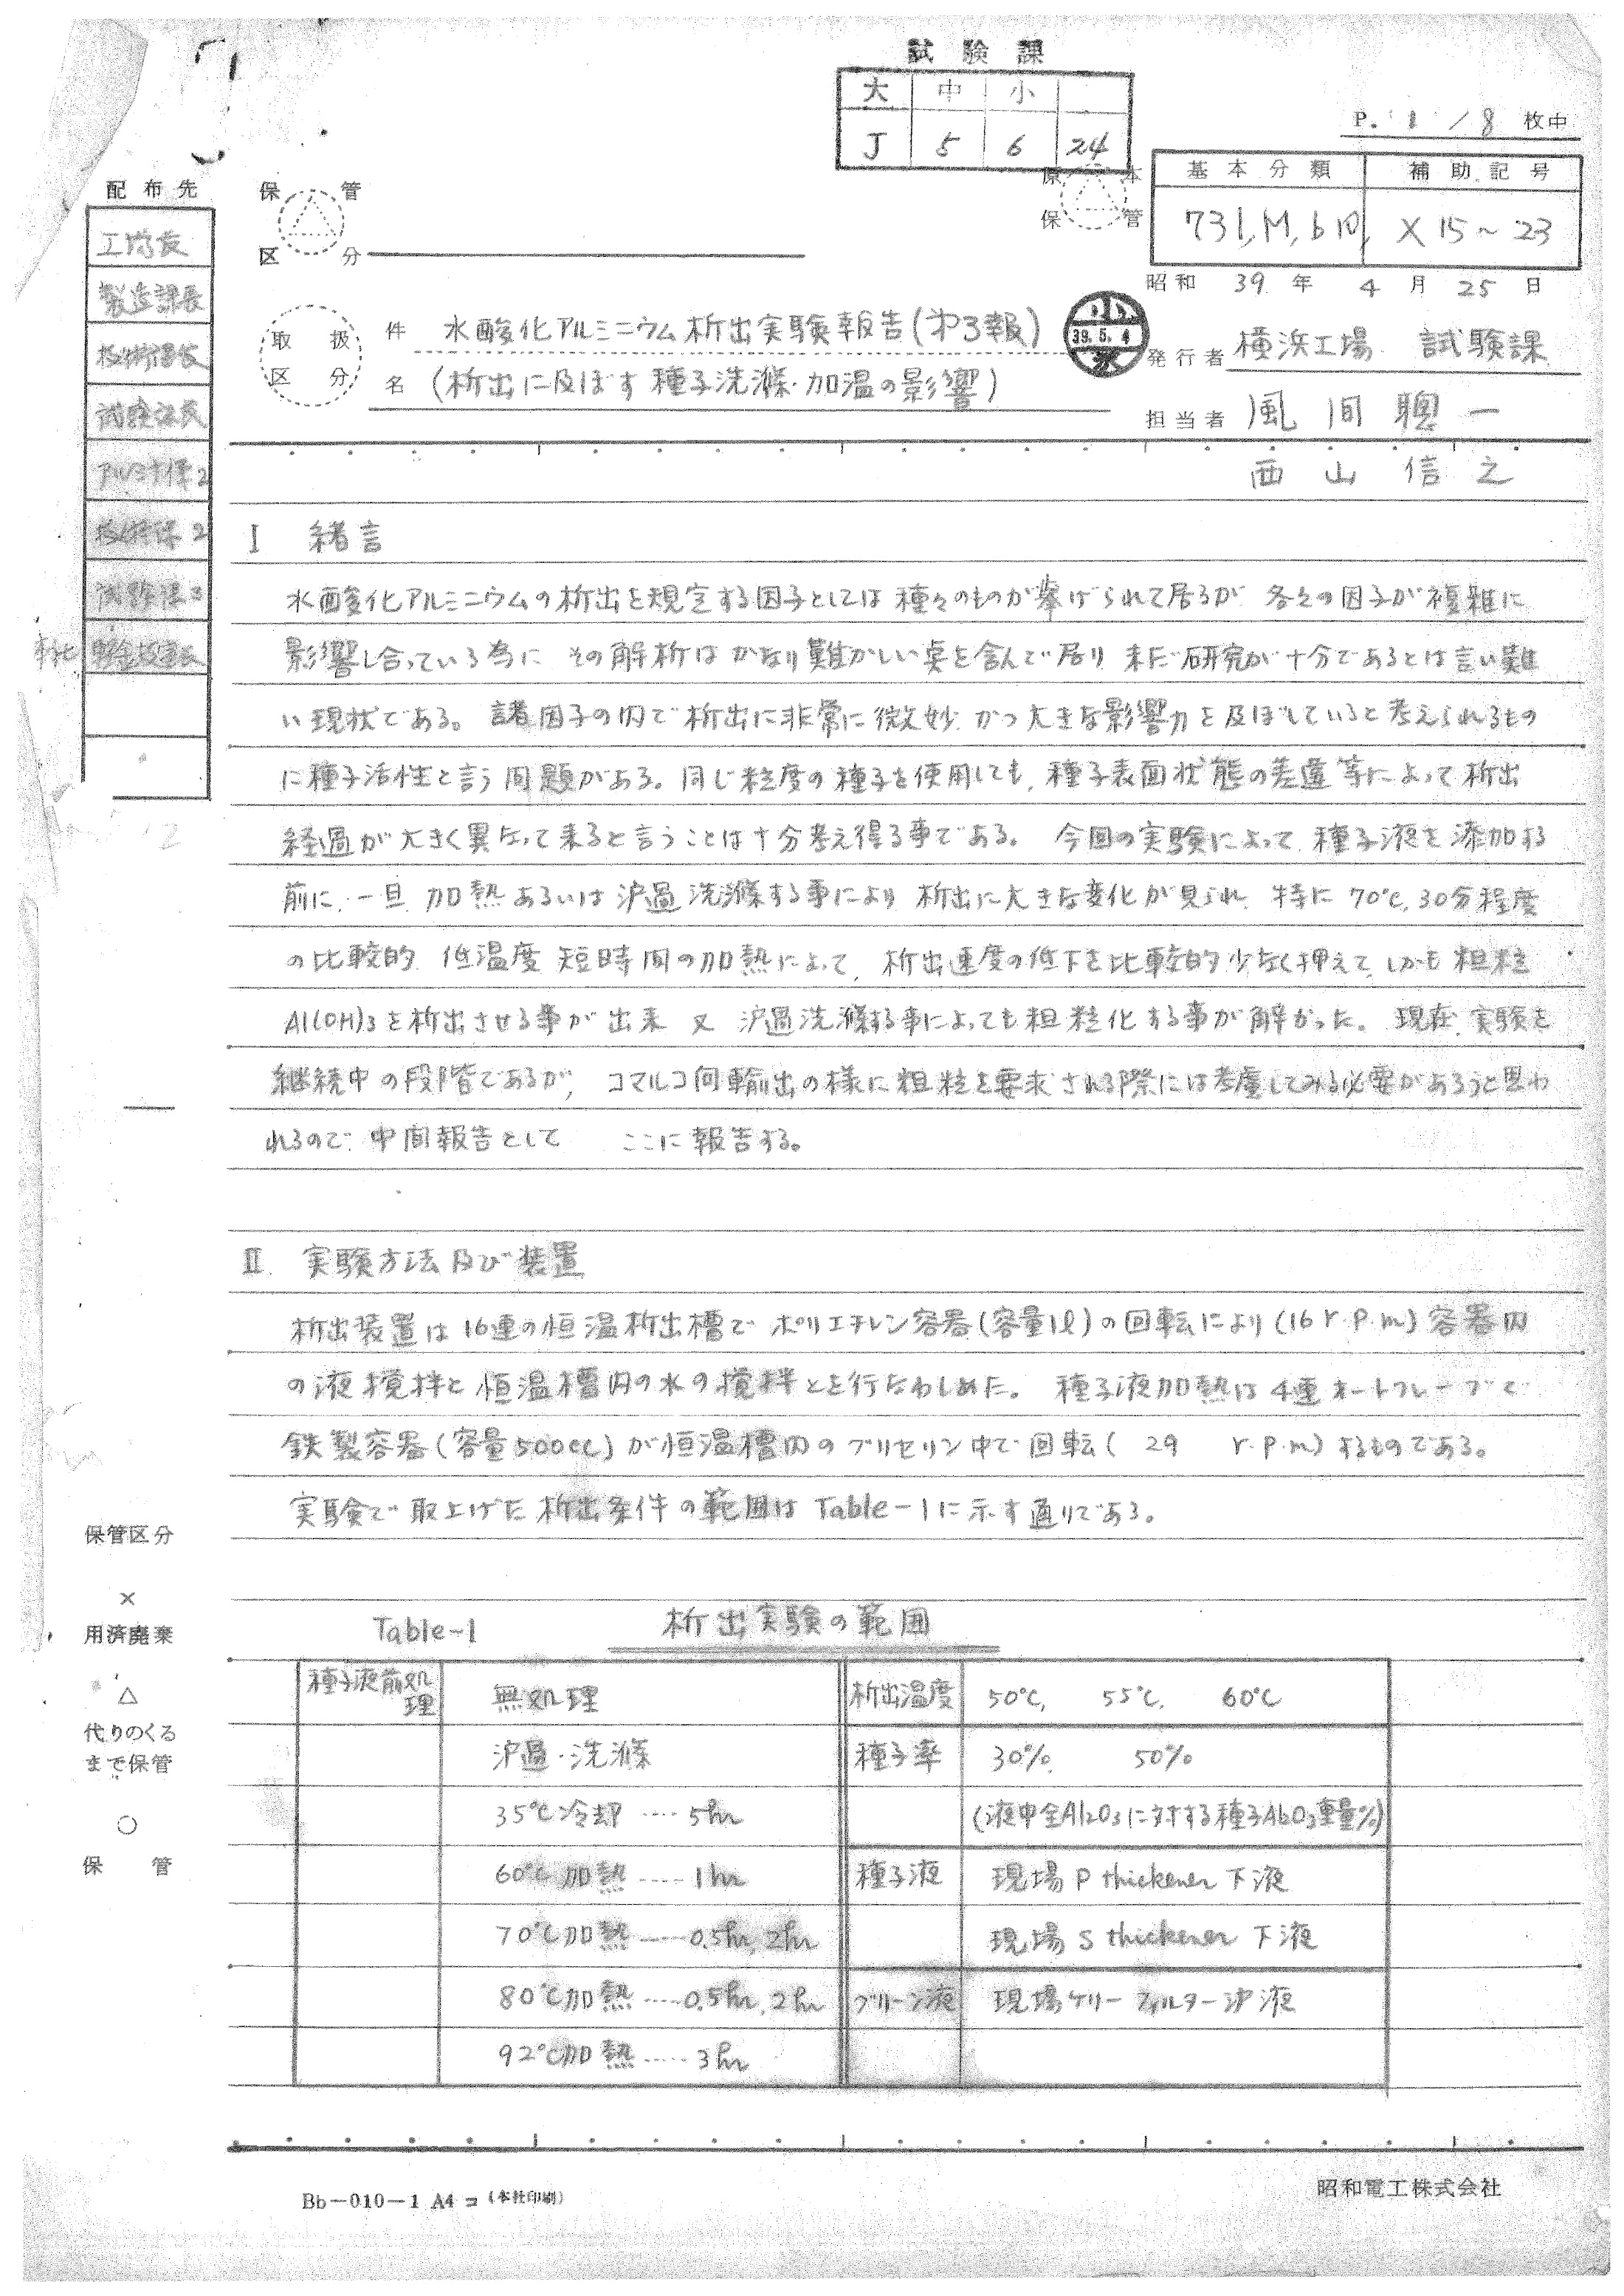 試験課
大 中 小
J 5 6 24
P. 1 / 8 枚中
基本分類 補助記号
731, M, 610, X 15~23
原本保管
配布先
工場長
製造課長
技術課長
試験課長
アルミナ係2
技術係2
試験課3
本社
保管区分
昭和 39 年 4 月 25 日
取扱区分
件名 水酸化アルミニウム析出実験報告(第3報)
(析出に及ぼす種子洗滌・加温の影響)
小
39.5.4
発行者 横浜工場 試験課
担当者 風間聰一
西山信之
I 緒言
水酸化アルミニウムの析出を規定する因子としては種々のものが挙げられて居るが 各々の因子が複雑に
影響し合っている為に その解析はかなり難かしい点を含んで居り 未だ研究が十分であるとは言い難
い現状である。諸因子の内で析出に非常に微妙かつ大きな影響力を及ぼしていると考えられるもの
に種子活性と言う問題がある。同じ粒度の種子を使用しても、種子表面状態の差違等によって析出
経過が大きく異なって来ると言うことは十分考え得る事である。 今回の実験によって、種子液を添加する
前に、一旦 加熱あるいは沪過洗滌する事により 析出に大きな変化が見られ 特に 70℃, 30分程度
の比較的 低温度 短時間の加熱によって、析出速度の低下を比較的少なく押えて、しかも粗粒
Al(OH)3を析出させる事が出来 又 沪過洗滌する事によっても粗粒化する事が解かった。現在、実験を
継続中の段階であるが、コマルコ向輸出の様に粗粒を要求される際には考慮してみる必要があろうと思わ
れるので 中間報告として ここに報告する。
II. 実験方法及び装置
析出装置は 16連の恒温析出槽で ポリエチレン容器(容量1ℓ)の回転により (16 r.p.m) 容器内
の液攪拌と恒温槽内の水の攪拌とを行なわしめた。 種子液加熱は4連オートクレーブで
鉄製容器(容量500cc)が恒温槽内のグリセリン中で回転( 29 r.p.m)するものである。
実験で取上げた析出条件の範囲は Table-1に示す通りである。
Table-1 析出実験の範囲
種子液前処理 無処理 析出温度 50℃, 55℃, 60℃
沪過・洗滌 種子率 30%, 50%
35℃冷却 ···· 5hr (液中全Al2O3に対する種子Al2O3重量%)
60℃加熱 ···· 1hr 種子液 現場 P thickener 下液
70℃加熱 ···· 0.5hr, 2hr 現場 S thickener 下液
80℃加熱 ···· 0.5hr, 2hr グリーン液 現場ケリーフィルター沪液
92℃加熱 ···· 3hr
保管区分
×
用済廃棄
△
代りのくる
まで保管
○
保管
Bb-010-1 A4 コ (本社印刷)
昭和電工株式会社